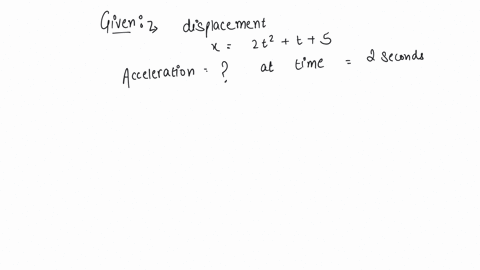 Given:→ displacement
x = 2t² + t + 5
Acceleration = ? at time = 2 seconds